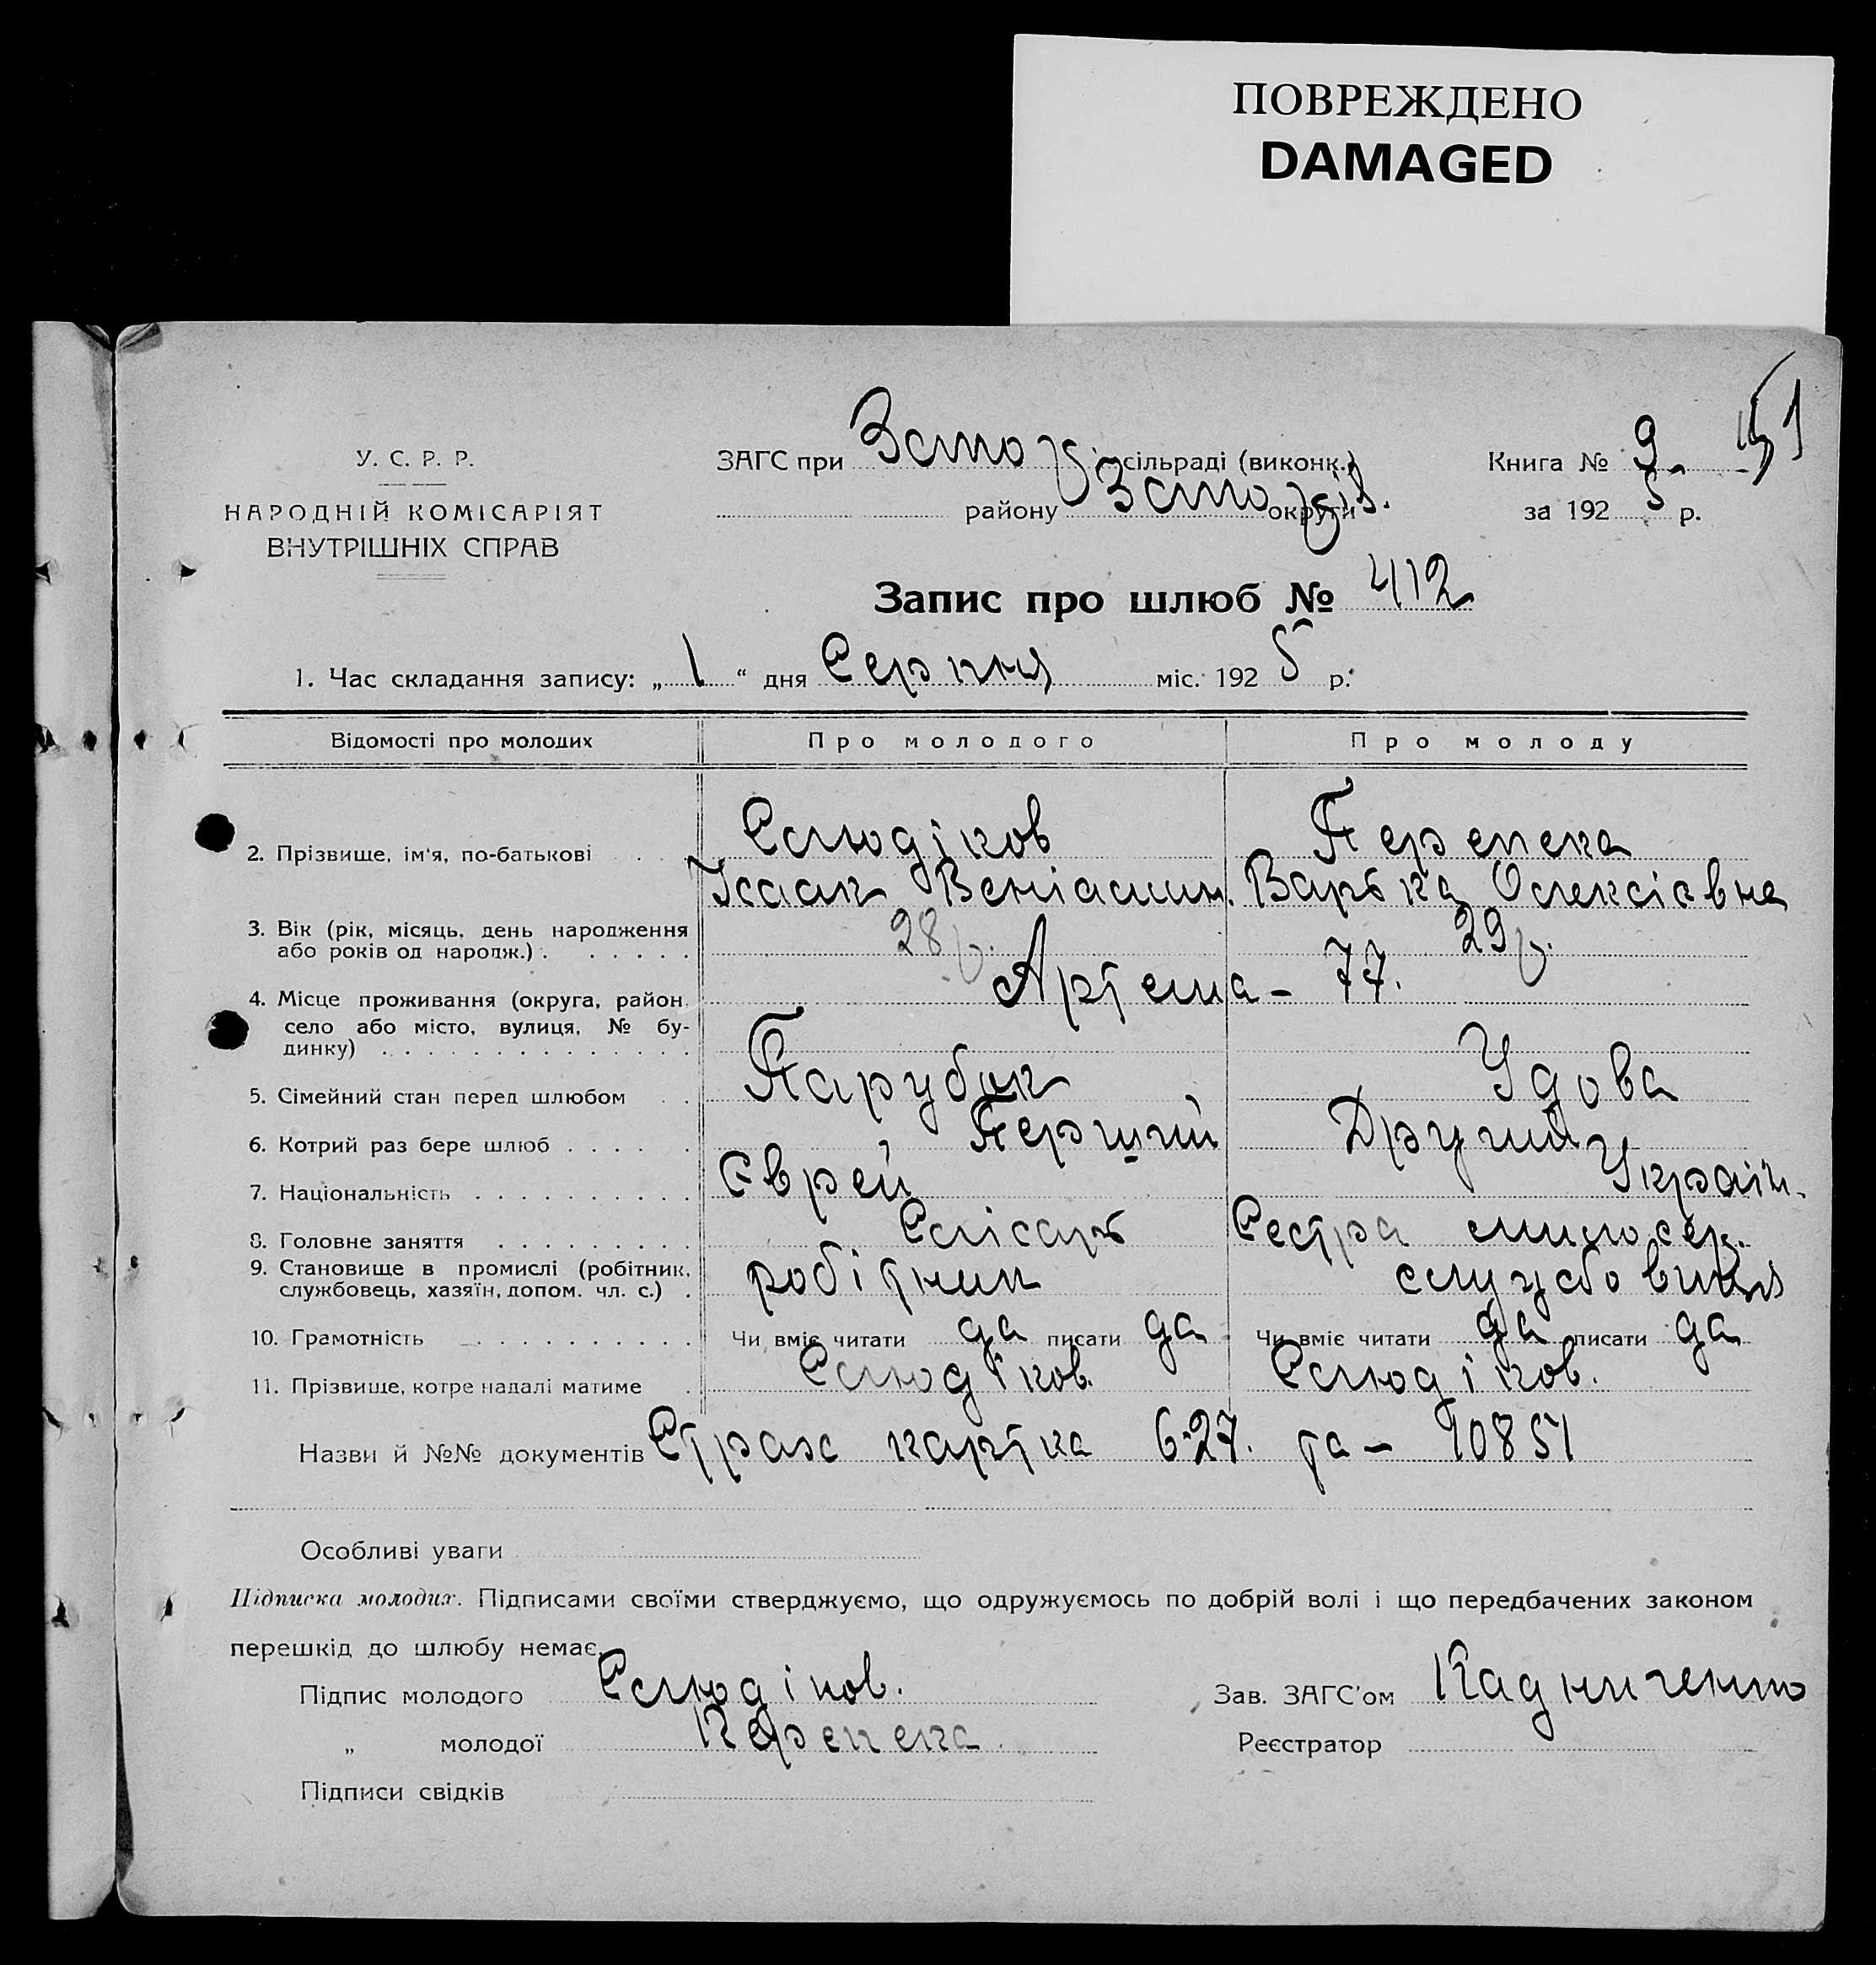 ПОВРЕЖДЕНО
DAMAGED
У. С. Р. Р.
НАРОДНІЙ КОМІСАРІЯТ
ВНУТРІШНІХ СПРАВ
ЗАГС при сільраді (виконк.)
району округи
Книга № 9
за 192 5 р.
Запис про шлюб № 412
1. Час складання запису: „ 1 “ дня Серпня міс. 192 5 р.
Відомості про молодих Про молодого Про молоду
2. Прізвище, ім'я, по-батькові Слюдіков Перепека
Ісаак Веніамин. Варька Олексієвна
3. Вік (рік, місяць, день народження 28 р. 29 р.
або років од народж.)
4. Місце проживання (округа, район, Артема - 77.
село або місто, вулиця, № бу-
динку)
5. Сімейний стан перед шлюбом Парубок Удова
6. Котрий раз бере шлюб Перший Другий
7. Національність Єврей Україн.
8. Головне заняття Слісарь Сестра милосер.
9. Становище в промислі (робітник, робітник службовиця
службовець, хазяїн, допом. чл. с.)
10. Грамотність Чи вміє читати да писати да Чи вміє читати да писати да
11. Прізвище, котре надалі матиме Слюдіков. Слюдіков.
Назви й №№ документів Страх картка 627. та - 10851
Особливі уваги
Підписка молодих. Підписами своїми стверджуємо, що одружуємось по добрій волі і що передбачених законом
перешкід до шлюбу немає.
Підпис молодого Слюдіков. Зав. ЗАГС'ом
„ молодої Перепека Реєстратор
Підписи свідків